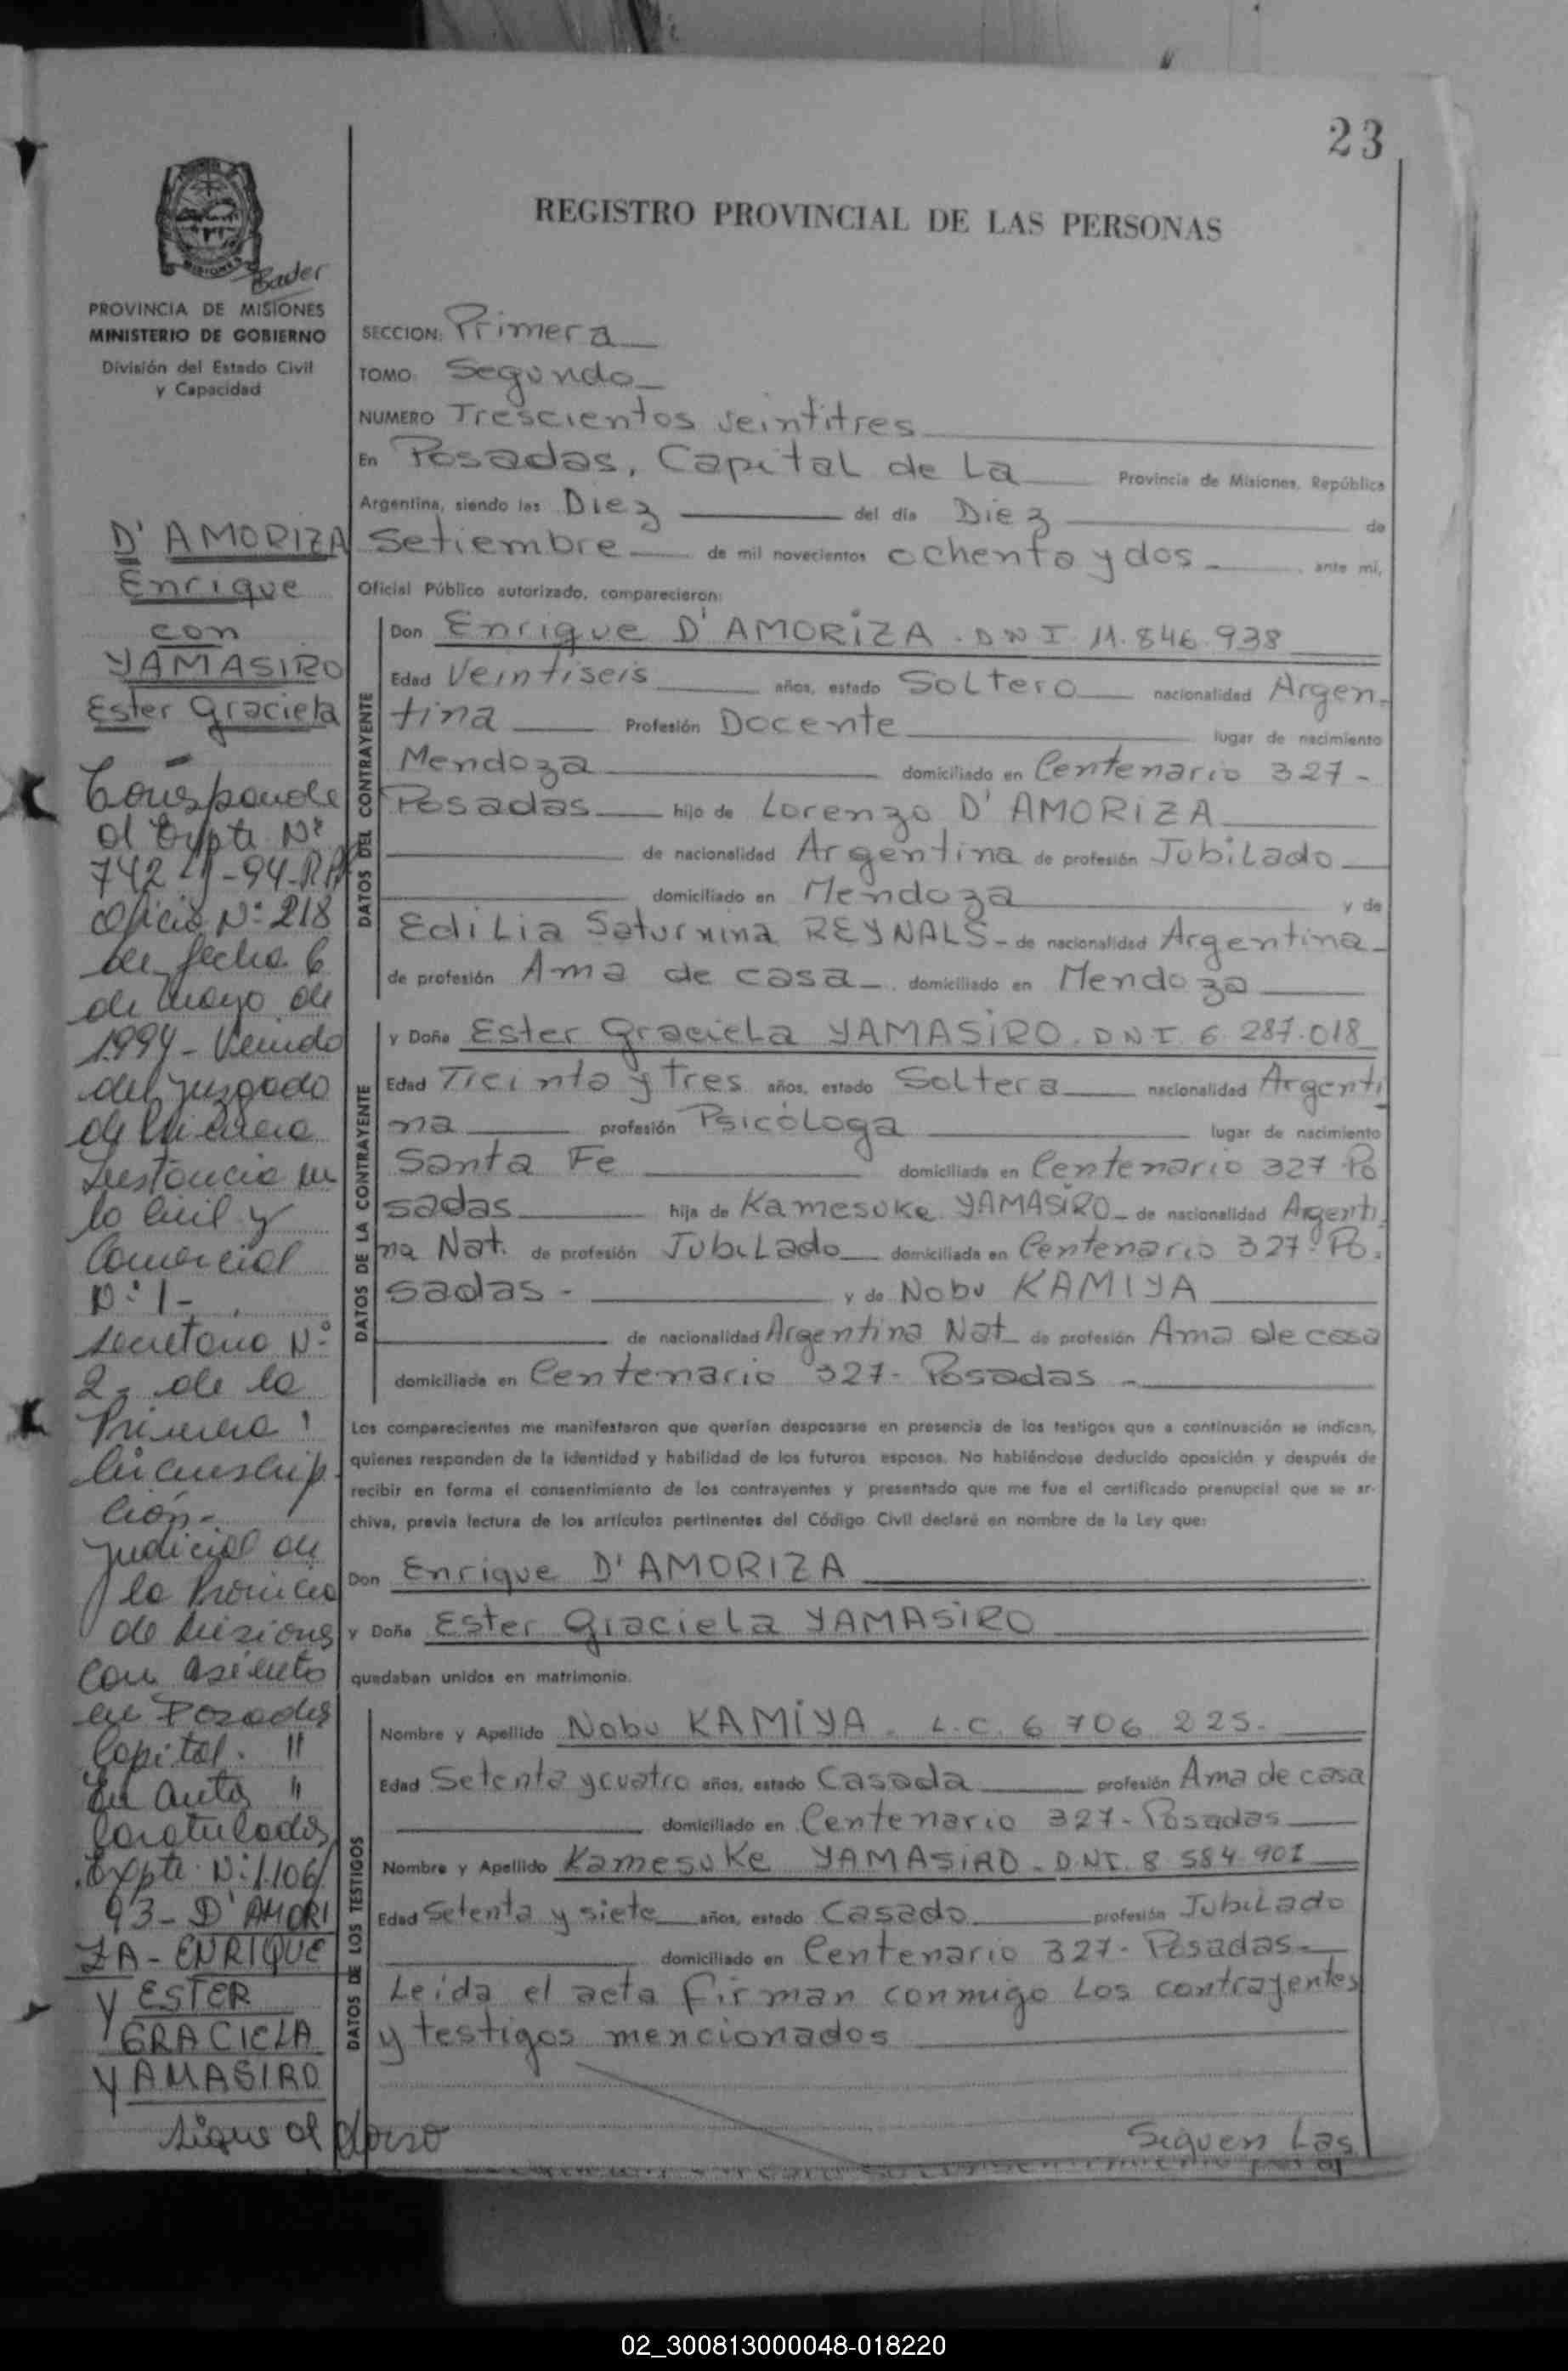 23
REGISTRO PROVINCIAL DE LAS PERSONAS
MISIONES
Bader
PROVINCIA DE MISIONES
MINISTERIO DE GOBIERNO
División del Estado Civil
y Capacidad
D' AMORIZA
Enrique
con
YAMASIRO
Ester Graciela
Corresponde
al Expte Nº
742
Oficio Nº 218
de fecha 6
de mayo de
1994 - Venido
del juzgado
de Primera
Instancia en
lo Civil y
Comercial
Nº 1 -
Secretaria Nº
2 - de la
Primera
Circunscrip
ción -
judicial de
la Provincia
de Misiones
con asiento
en Posadas
Capital. "
En autos "
Caratulados
Expte Nº 1.106/
93 - D' AMORI
ZA - ENRIQUE
y ESTER
GRACIELA
YAMASIRO
sigue al dorso
SECCION: Primera
TOMO: Segundo
NUMERO Trescientos veintitres
En Posadas, Capital de La Provincia de Misiones, República
Argentina, siendo las Diez del día Diez de
Setiembre de mil novecientos ochenta y dos ante mí,
Oficial Público autorizado, comparecieron:
DATOS DEL CONTRAYENTE
Don Enrique D' AMORIZA . DNI 11.846.938
Edad Veintiseis años, estado Soltero nacionalidad Argen-
tina Profesión Docente lugar de nacimiento
Mendoza domiciliado en Centenario 327 -
Posadas hijo de Lorenzo D' AMORIZA
de nacionalidad Argentina de profesión Jubilado
domiciliado en Mendoza y de
Edilia Saturnina REYNALS - de nacionalidad Argentina -
de profesión Ama de casa - domiciliado en Mendoza
DATOS DE LA CONTRAYENTE
y Doña Ester Graciela YAMASIRO . DNI. 6.287.018
Edad Treinta y Tres años, estado Soltera nacionalidad Argenti
na profesión Psicóloga lugar de nacimiento
Santa Fe domiciliada en Centenario 327 Po
sadas hija de Kamesuke YAMASIRO - de nacionalidad Argenti
na Nat. de profesión Jubilado domiciliado en Centenario 327 - Po.
sadas - y de Nobu KAMIYA
de nacionalidad Argentina Nat de profesión Ama de casa
domiciliada en Centenario 327 - Posadas -
Los comparecientes me manifestaron que querían desposarse en presencia de los testigos que a continuación se indican,
quienes responden de la identidad y habilidad de los futuros esposos. No habiéndose deducido oposición y después de
recibir en forma el consentimiento de los contrayentes y presentado que me fue el certificado prenupcial que se ar-
chiva, previa lectura de los artículos pertinentes del Código Civil declaré en nombre de la Ley que:
Don Enrique D' AMORIZA
y Doña Ester Graciela YAMASIRO
quedaban unidos en matrimonio.
DATOS DE LOS TESTIGOS
Nombre y Apellido Nobu KAMIYA - L.C. 6 706 225.
Edad Setenta y cuatro años, estado Casada profesión Ama de casa
domiciliado en Centenario 327 - Posadas
Nombre y Apellido Kamesuke YAMASIRO - DNI. 8 584 901
Edad Setenta y siete años, estado Casado profesión Jubilado
domiciliado en Centenario 327 - Posadas -
Leída el acta firman conmigo Los contrayentes
y testigos mencionados
Siguen Las
02_300813000048-018220